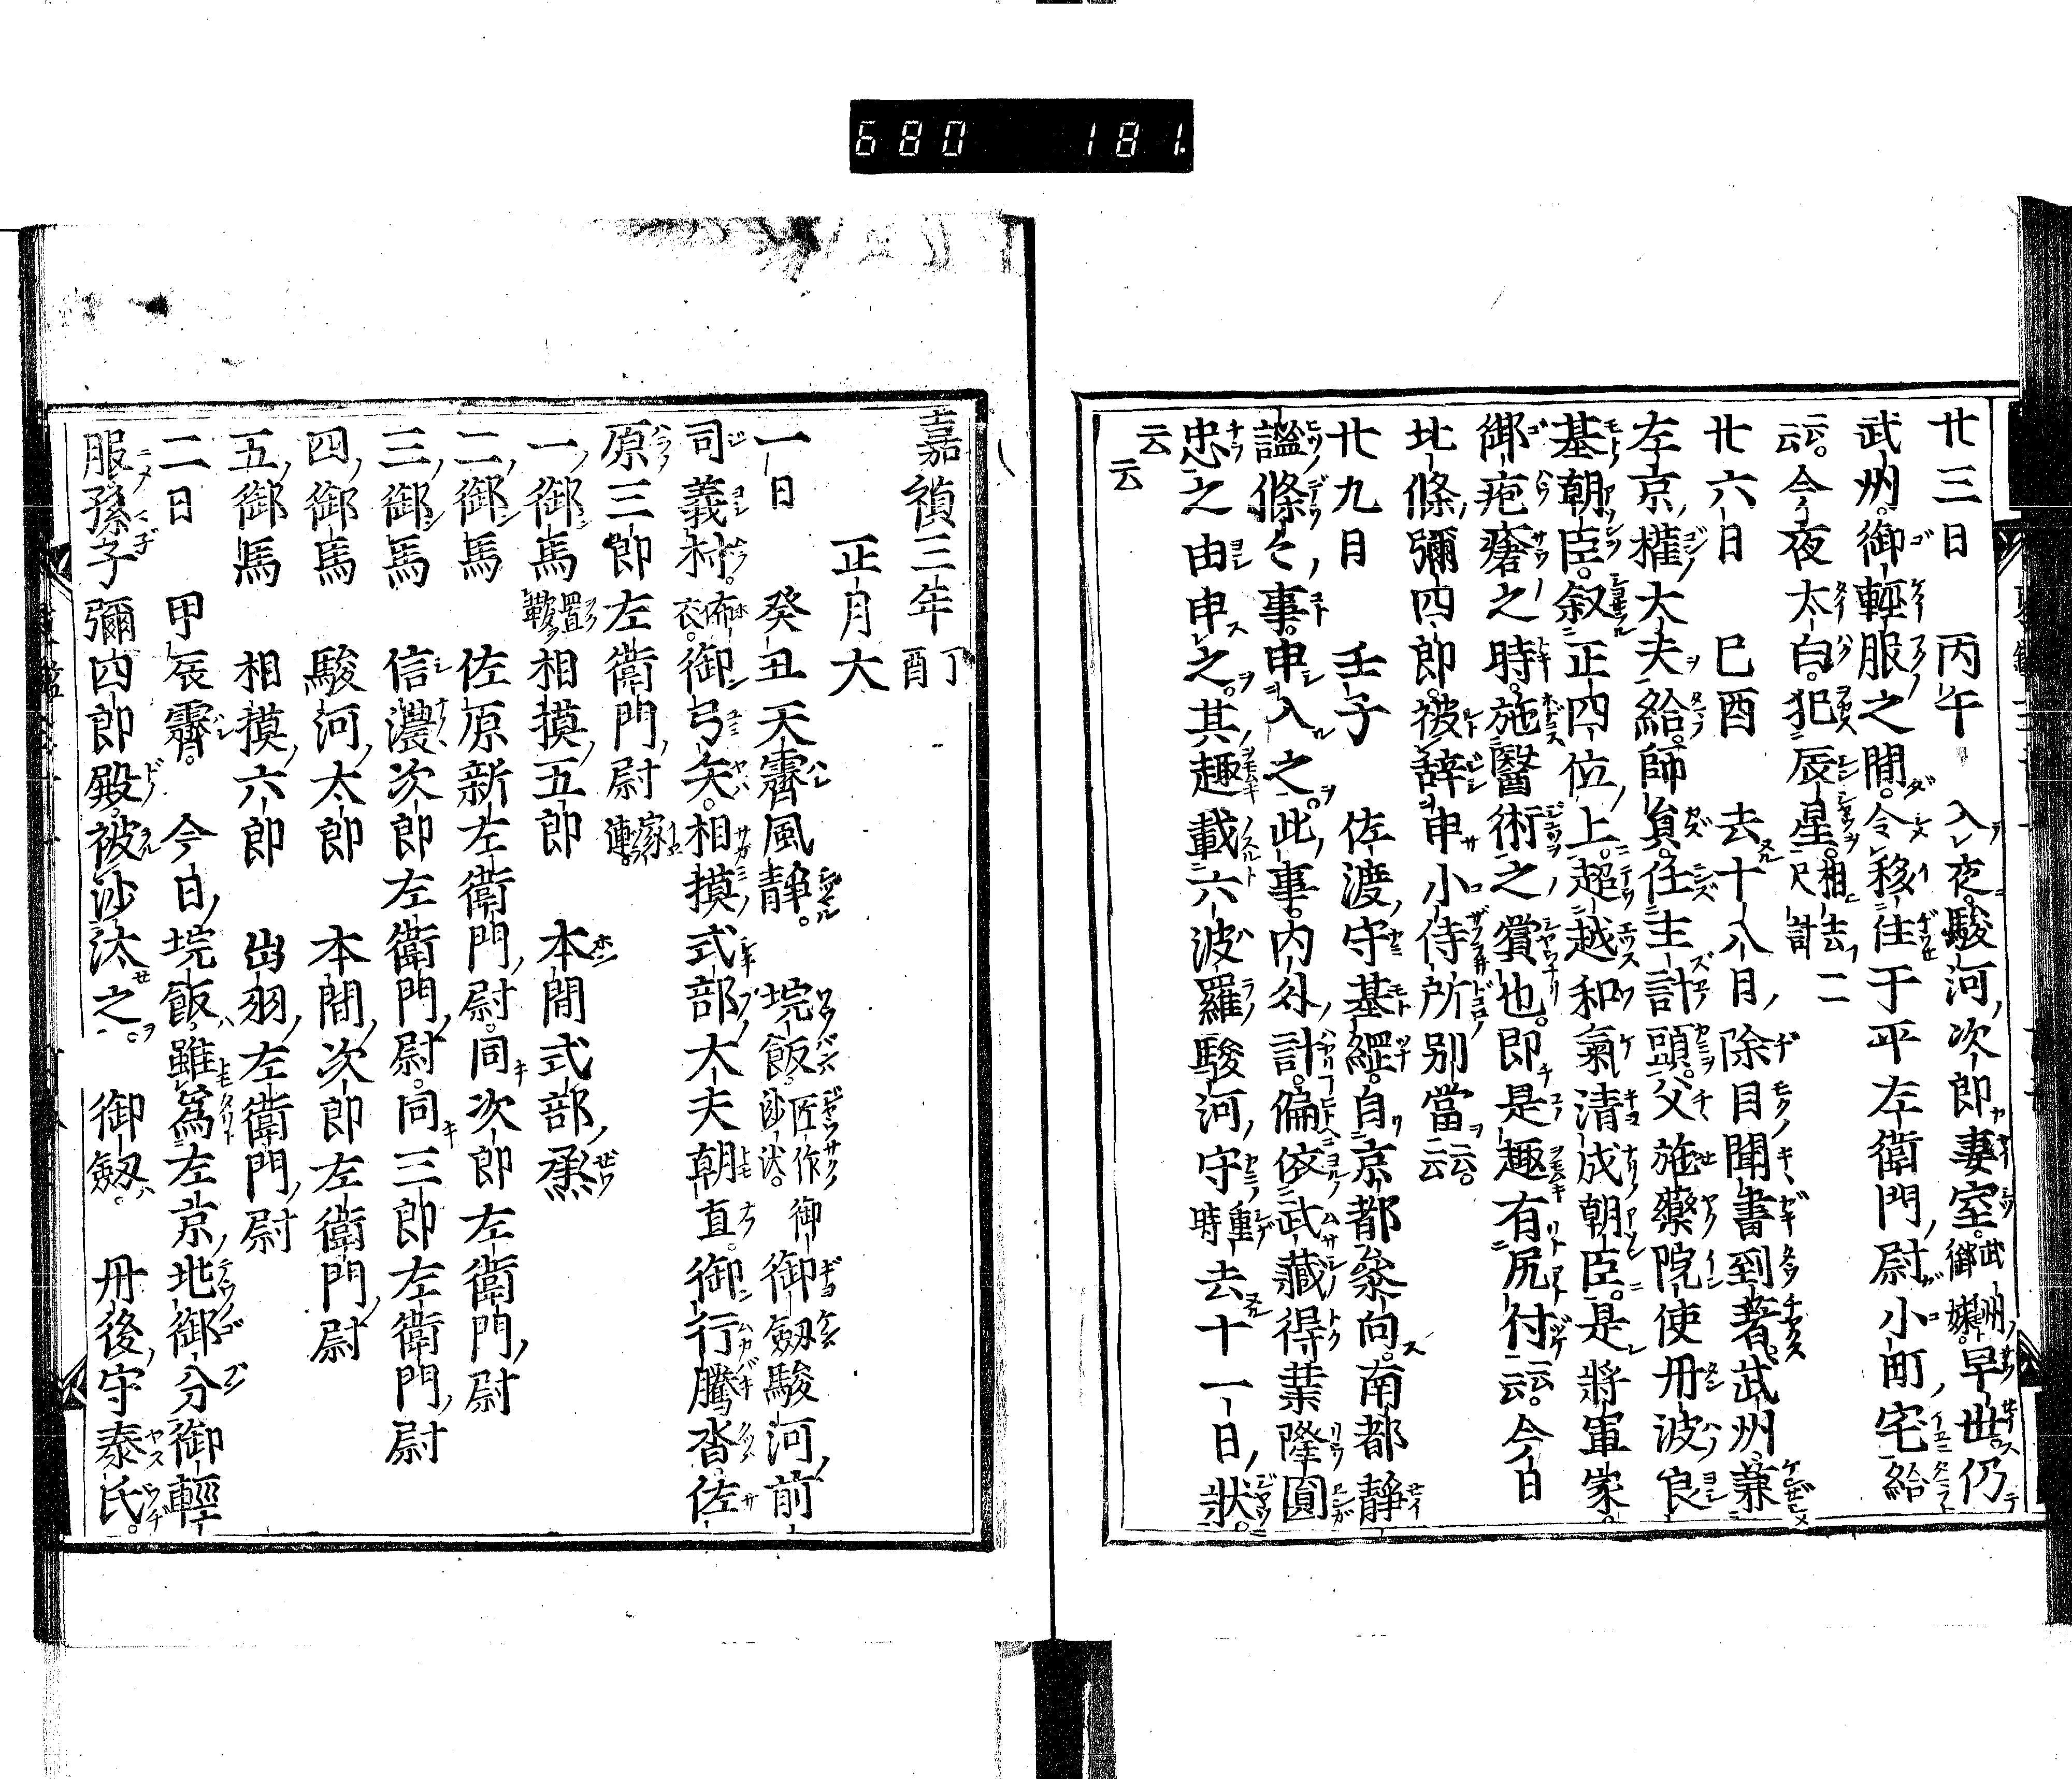 680 181.
廿三日 丙午 入夜。駿河次郎妻室。武州御妹。早世。仍
武州。御輕服之間。令移住于平左衛門尉小町宅給
云云。今夜太白。犯辰星。相去二尺計
廿六日 巳酉 去十八日。除目聞書到著。武州兼
左京權大夫給。師員。任主計頭。父施藥院使丹波良
基朝臣。叙正四位上。超越和氣清成朝臣。是將軍家。
御疱瘡之時。施醫術之賞也。即是趣有尻付云云。今日
北條彌四郎。被辭申小侍所別當云云。
廿九日 壬子 佐渡守基綱。自京都參向。南都靜
謐條々事。申入之。此事。内外計。偏依武藏得業隆圓
忠之由申之。其趣載六波羅駿河守重時去十一日狀。
云云
嘉禎三年丁酉
正月大
一日 癸丑 天霽風静。 垸飯。匠作御沙汰。 御劔駿河前
司義村。布衣。御弓矢。相摸式部大夫朝直。御行騰沓。佐
原三郎左衛門尉家連。
一御馬置鞍 相摸五郎 本間式部丞
二御馬 佐原新左衛門尉。同次郎左衛門尉
三御馬 信濃次郎左衛門尉。同三郎左衛門尉
四御馬 駿河太郎 本間次郎左衛門尉
五御馬 相摸六郎 出羽左衛門尉
二日 甲辰霽。 今日垸飯。雖爲左京北御分御輕
服孫子彌四郎殿。被沙汰之。 御劔。 丹後守泰氏。